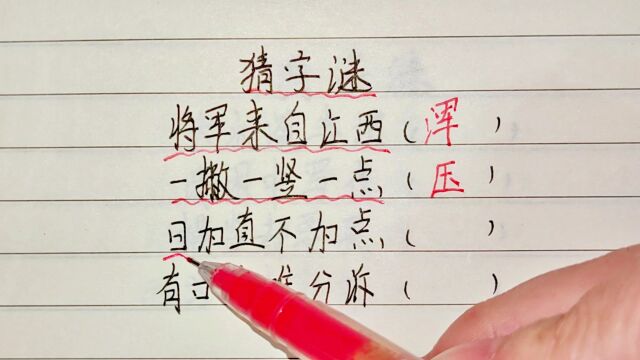 猜字谜
将军来自江西（浑）
一撇一竖一点（压）
日加直不加点（ ）
有口 分诉（ ）